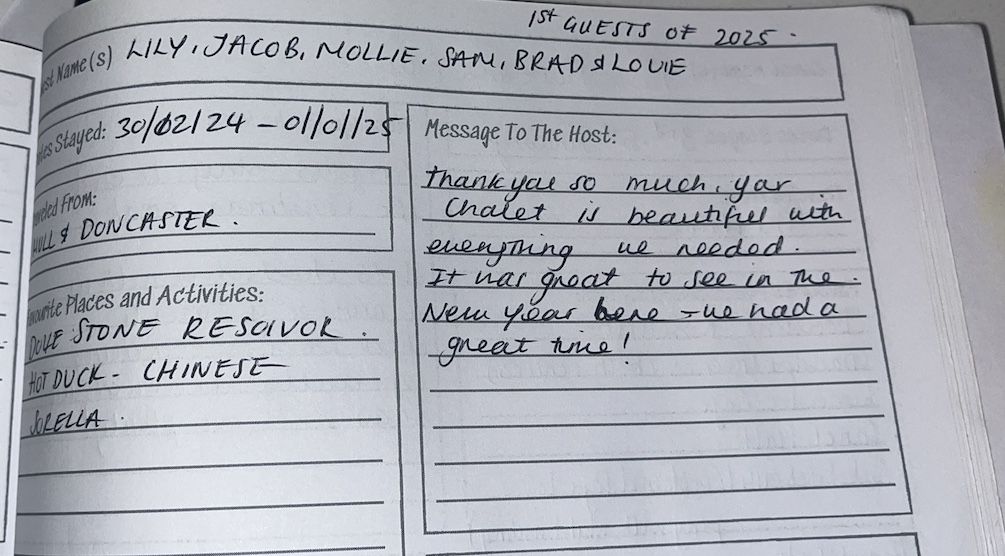 1st GUESTS OF 2025.
est Name(s) LILY, JACOB, MOLLIE, SAM, BRAD & LOUIE
tes Stayed: 30/02/24 - 01/01/25
veled From:
HULL & DONCASTER.
vourite Places and Activities:
DOVE STONE RESOIVOR.
HOT DUCK - CHINESE
SORELLA.
Message To The Host:
Thank you so much, your
Chalet is beautiful with
everything we needed.
It was great to see in the
New Year here - we had a
great time!